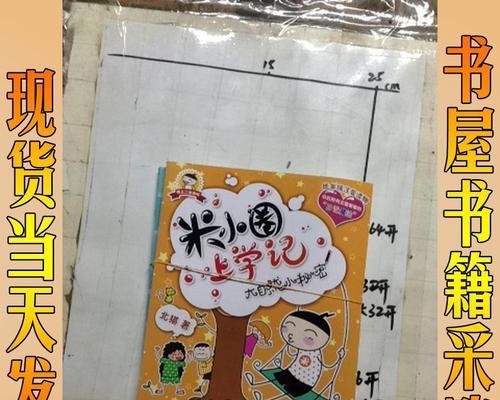 现货当天发
15
25
cm
米小圈
上学记
大自然小秘密
北猫 著
64开
32开
大32开
6开
书屋书籍采